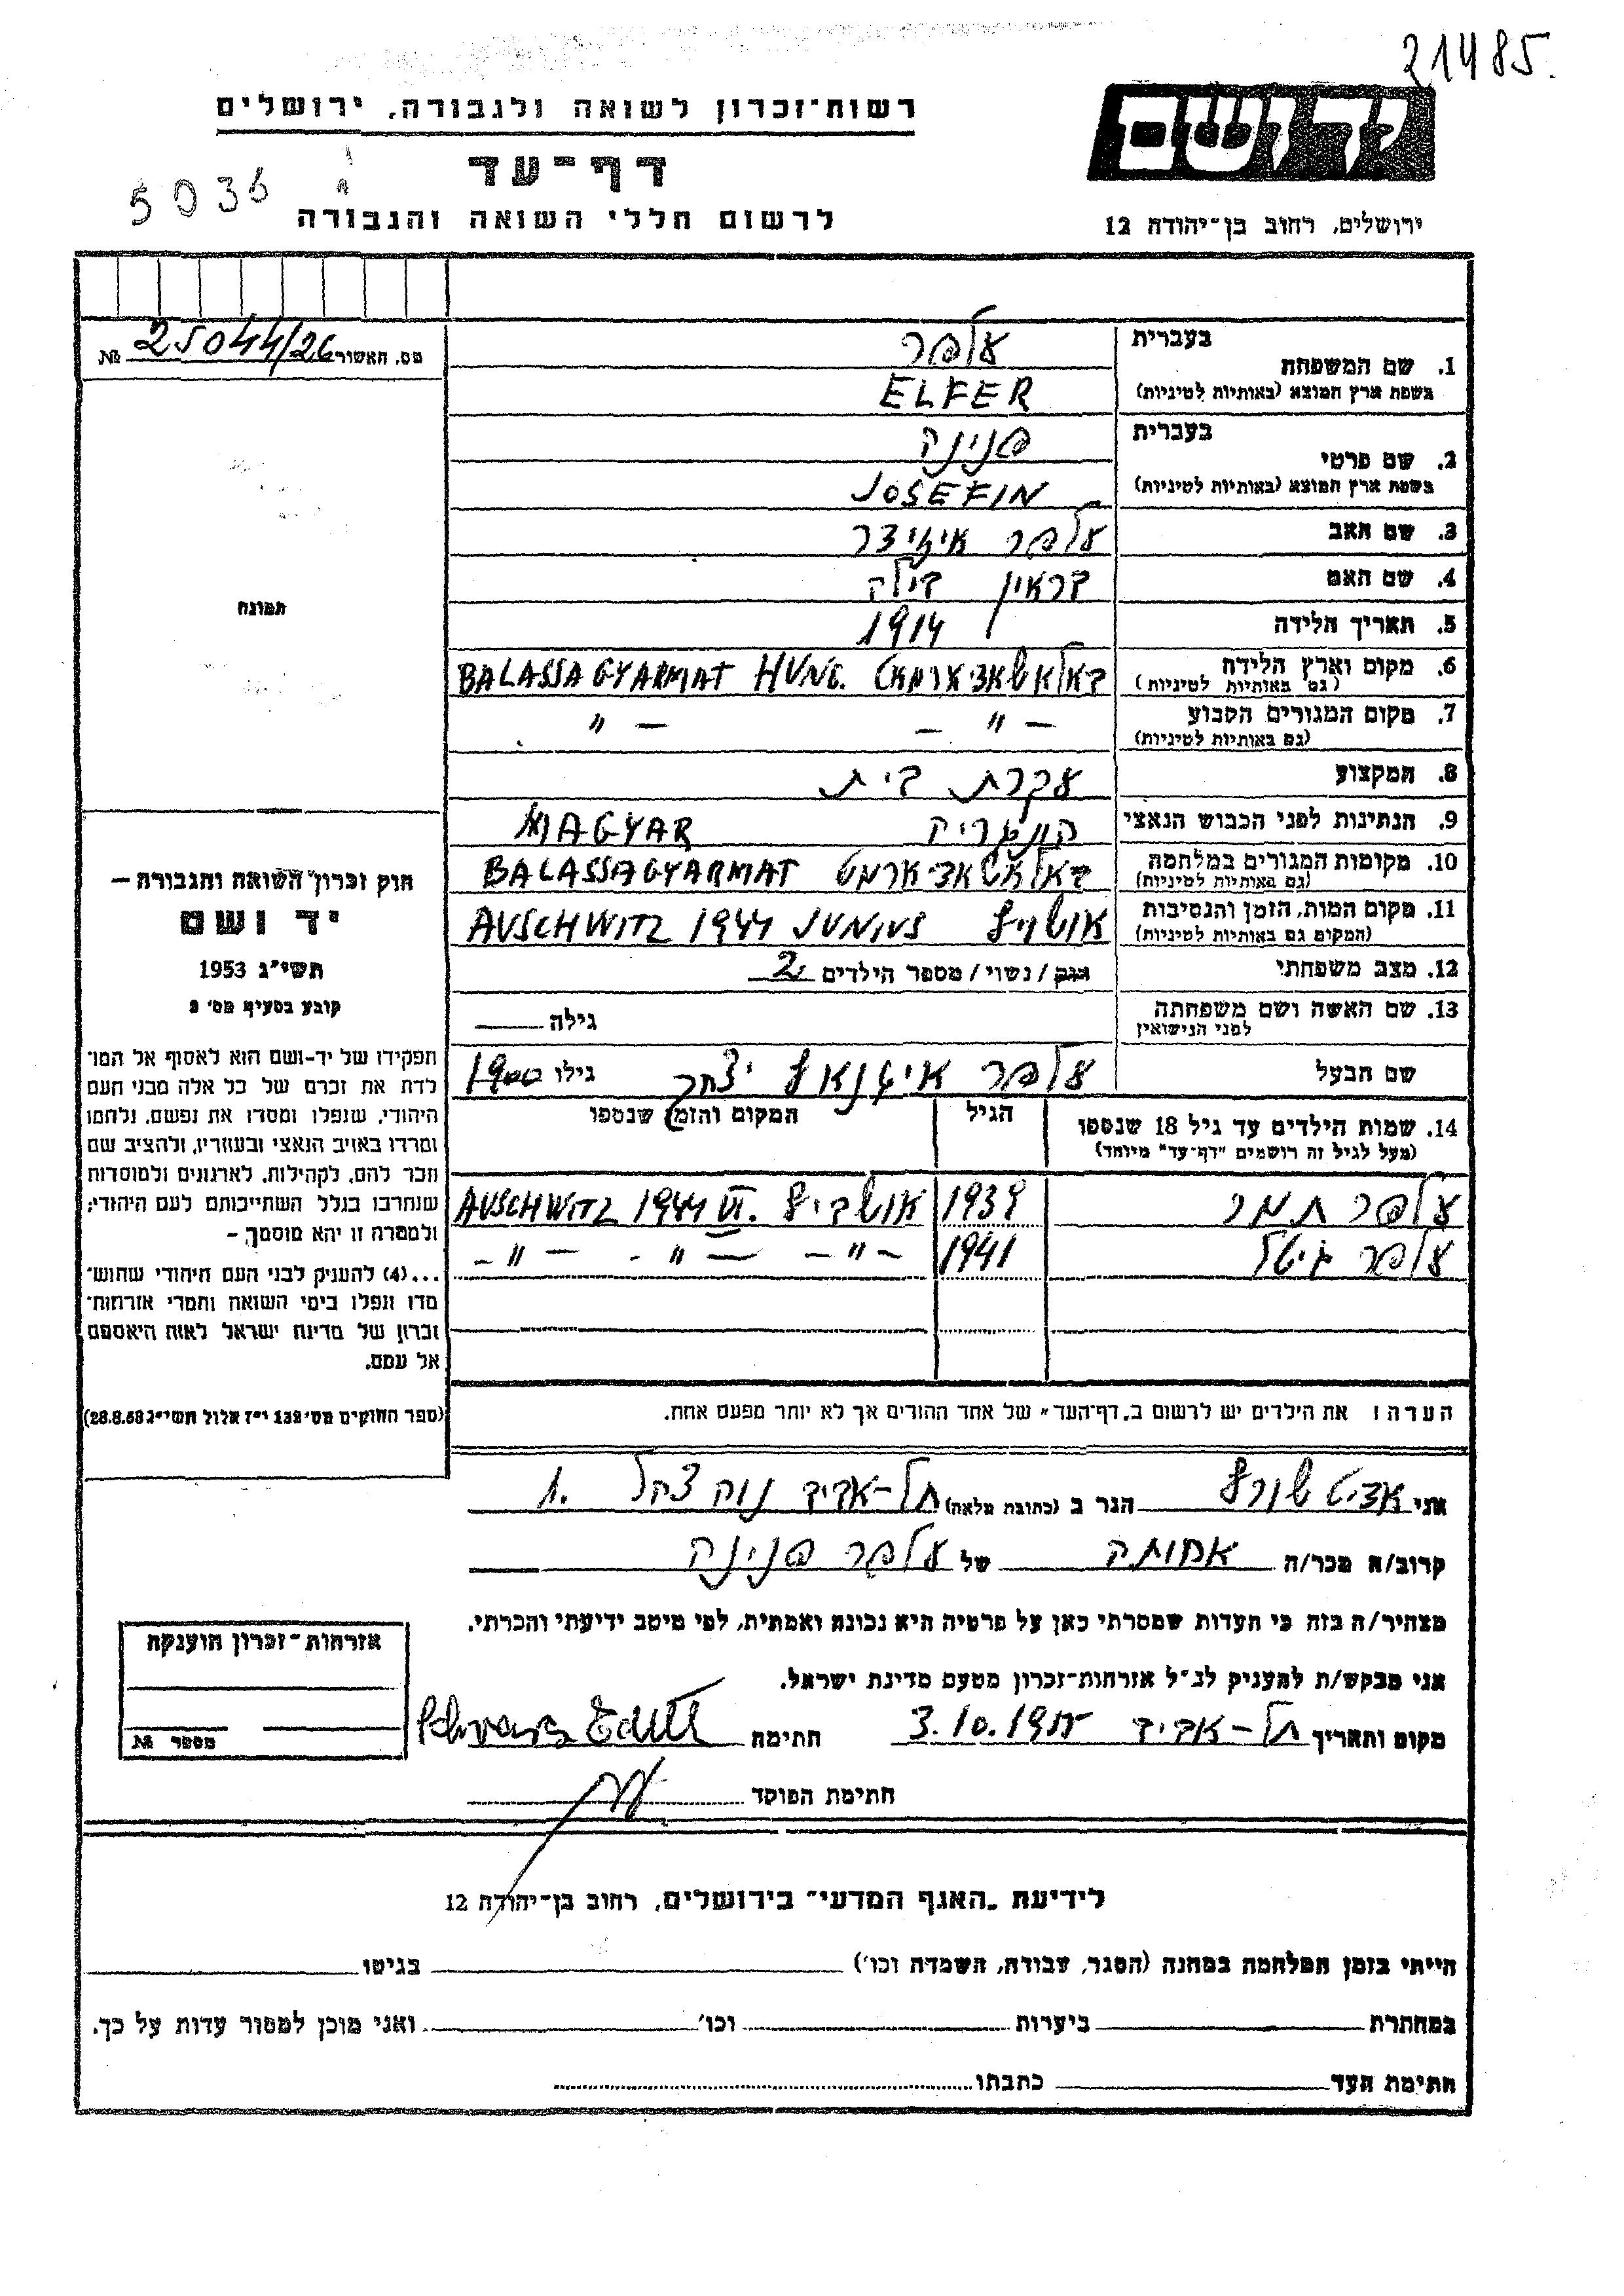 21485.
יד ושם
רשות-זכרון לשואה ולגבורה, ירושלים
דף-עד
5036
לרשום חללי השואה והגבורה
ירושלים, רחוב בן-יהודה 12
מס. האשור 25044/26 №
בעברית
1. שם המשפחה עלפר
בשפת ארץ המוצא (באותיות לטיניות) ELFER
בעברית
2. שם פרטי פנינה
בשפת ארץ המוצא (באותיות לטיניות) JOSEFIN
3. שם האב עלפר
4. שם האם בראון בילה
5. תאריך הלידה 1914
6. מקום וארץ הלידה BALASSAGYARMAT HUNG.
(גם באותיות לטיניות)
7. מקום המגורים הקבוע — " — — "
(גם באותיות לטיניות)
8. המקצוע עקרת בית
9. הנתינות לפני הכבוש הנאצי הונגריה MAGYAR
10. מקומות המגורים במלחמה BALASSAGYARMAT
(גם באותיות לטיניות)
11. מקום המות, הזמן והנסיבות אושויץ AUSCHWITZ 1944 JUNIUS
(המקום גם באותיות לטיניות)
12. מצב משפחתי רווק / נשוי / מספר הילדים 2
13. שם האשה ושם משפחתה גילה
לפני הנישואין
שם הבעל עלפר איגנאץ יצחק גילו 1900
14. שמות הילדים עד גיל 18 שנספו הגיל המקום והזמן שנספו
(מעל לגיל זה רושמים "דף-עד" מיוחד)
עלפר תמר 1939 אושביץ AUSCHWITZ 1944 VI.
עלפר גיטל 1941 — " — — " — — " —
הערה: את הילדים יש לרשום ב"דף-העד" של אחד ההורים אך לא יותר מפעם אחת.
תמונה
חוק זכרון השואה והגבורה —
יד ושם
תשי"ג 1953
קובע בסעיף מס' 2
תפקידו של יד-ושם הוא לאסוף אל המו-
לדת את זכרם של כל אלה מבני העם
היהודי, שנפלו ומסרו את נפשם, נלחמו
ומרדו באויב הנאצי ובעוזריו, ולהציב שם
וזכר להם, לקהילות, לארגונים ולמוסדות
שנחרבו בגלל השתייכותם לעם היהודי;
ולמטרה זו יהא מוסמך –
...(4) להעניק לבני העם היהודי שהוש-
מדו ונפלו בימי השואה והמרי אזרחות-
זכרון של מדינת ישראל לאות היאספם
אל עמם.
(ספר החוקים מס' 132 י"ז אלול תשי"ג 28.8.53)
אני אדיט שורץ הגר ב (כתובת מלאה) תל-אביב נוה צהל 1.
קרוב/ה מכר/ה אחותה של עלפר פנינה
מצהיר/ה בזה כי העדות שמסרתי כאן על פרטיה היא נכונה ואמתית, לפי מיטב ידיעתי והכרתי.
אני מבקש/ת להעניק לנ"ל אזרחות-זכרון מטעם מדינת ישראל.
מקום ותאריך תל-אביב 3.10.19 חתימה Schwarz Edith
חתימת הפוקד
אזרחות-זכרון הוענקה
מספר №
לידיעת "האגף המדעי" בירושלים, רחוב בן-יהודה 12
הייתי בזמן המלחמה במחנה (הסגר, עבודה, השמדה וכו') בגיטו
במחתרת ביערות וכו' ואני מוכן למסור עדות על כך.
חתימת העד כתבתו